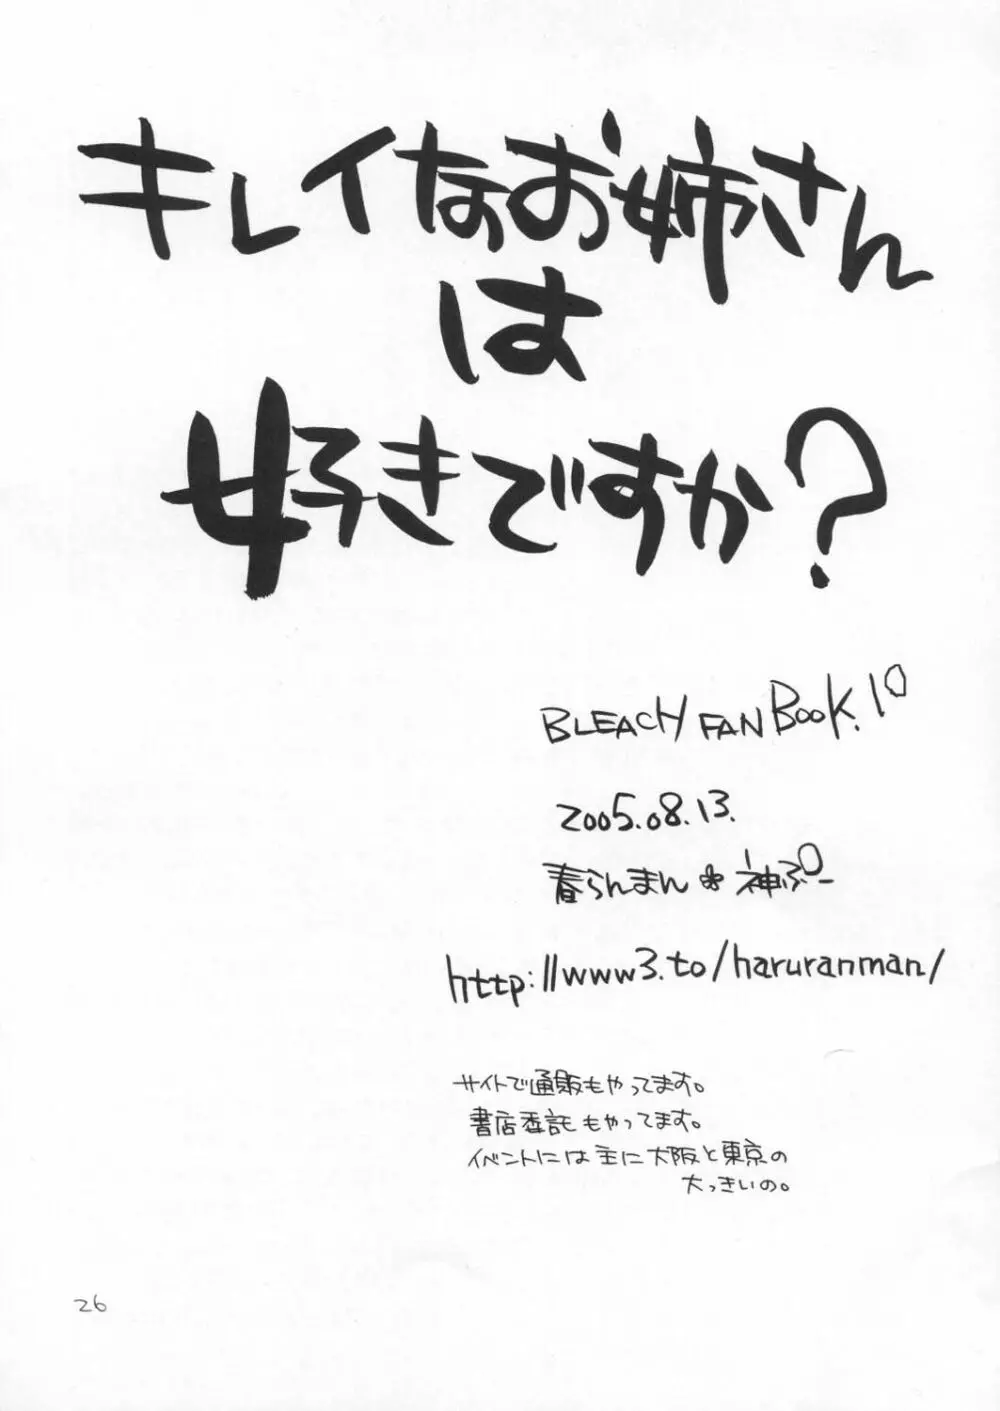 キレイなお姉さん
は
好きですか?
BLEACH FAN BOOK.10
2005.08.13.
春らんまん * 神ぷー
http://www3.to/haruranman/
サイトで通販もやってます。
書店委託もやってます。
イベントには主に大阪と東京の
大っきいの。
26